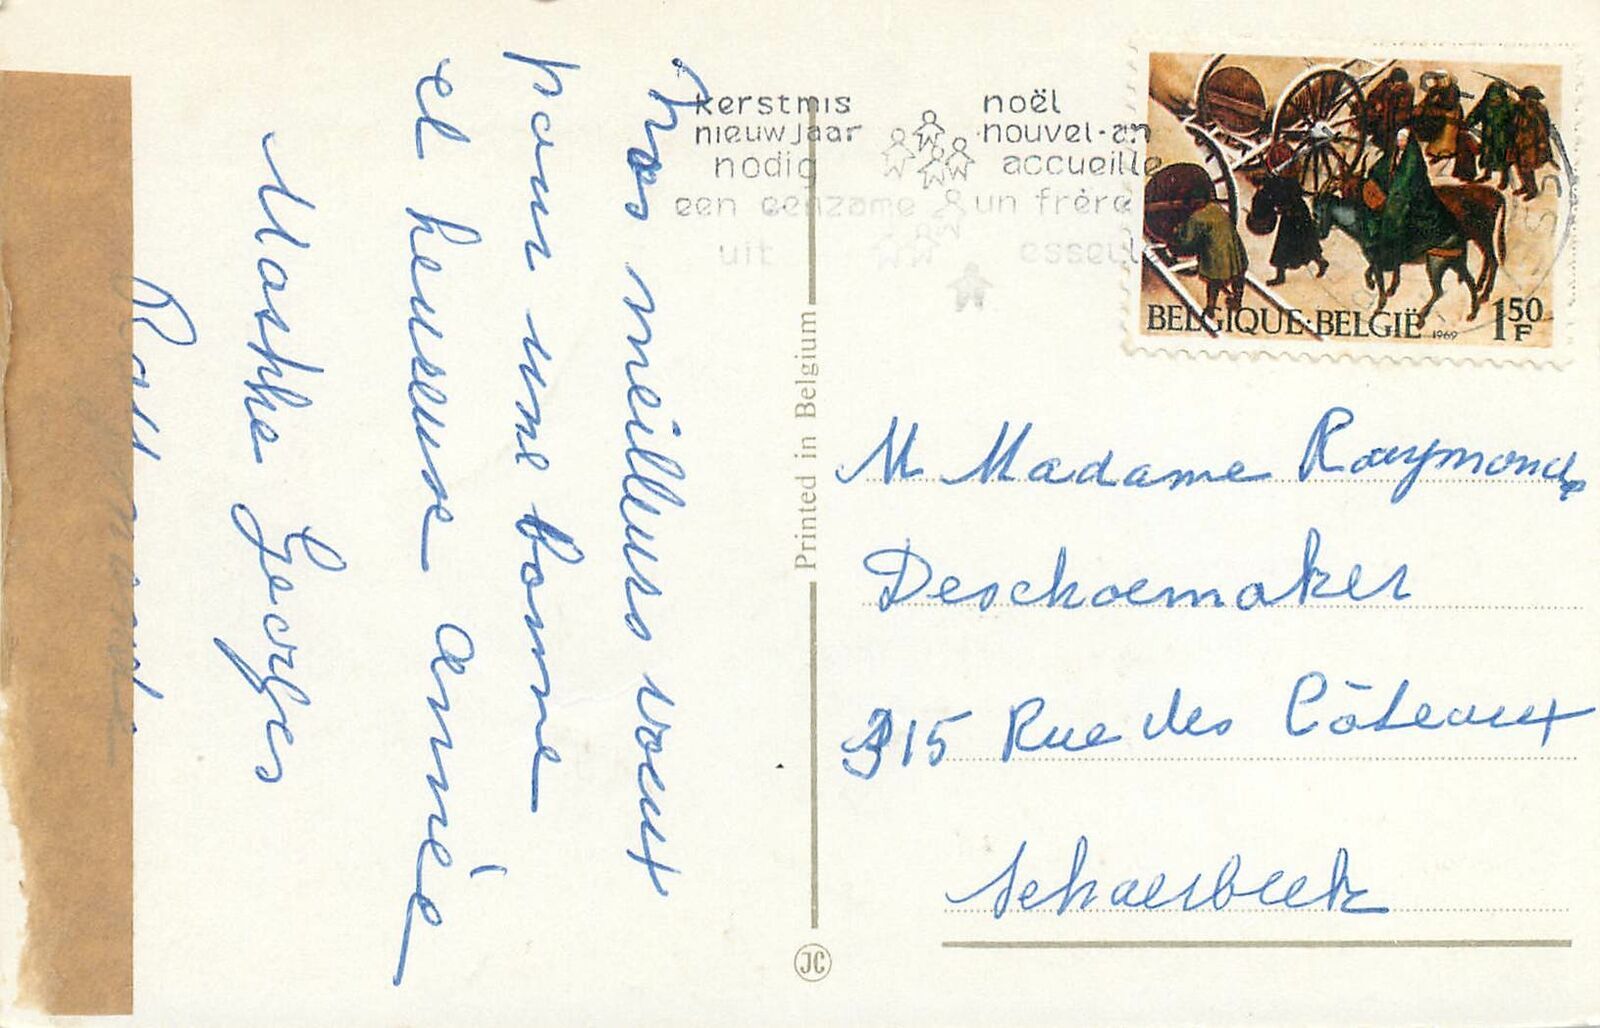 Nos meilleurs voeux
pour une bonne
et heureuse année
Maske Georges
kerstmis
nieuwjaar
nodig
een eenzame
uit
noël
nouvel-an
accueille
un frère
esseulé
BELGIQUE·BELGIË 1969 1 50 F
Printed in Belgium
JC
M Madame Raymond
Deschoemaker
315 Rue des Côteaux
Schaerbeek